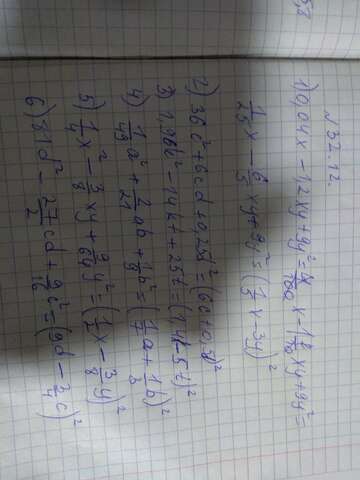 №32.12.
1) 0,04x - 1,2xy + 9y² = 4/100 x - 1 2/10 xy + 9y² =
1/25 x - 6/5 xy + 9y² = (1/5 x - 3y)²
2) 36c² + 6cd + 0,25d² = (6c + 0,5d)²
3) 1,96k² - 14kt + 25t² = (1,4k - 5t)²
4) 1/49 a² + 2/21 ab + 1/9 b² = (1/7 a + 1/3 b)²
5) 1/4 x² - 3/8 xy + 9/64 y² = (1/2 x - 3/8 y)²
6) 81d² - 27/2 cd + 9/16 c² = (9d - 3/4 c)²